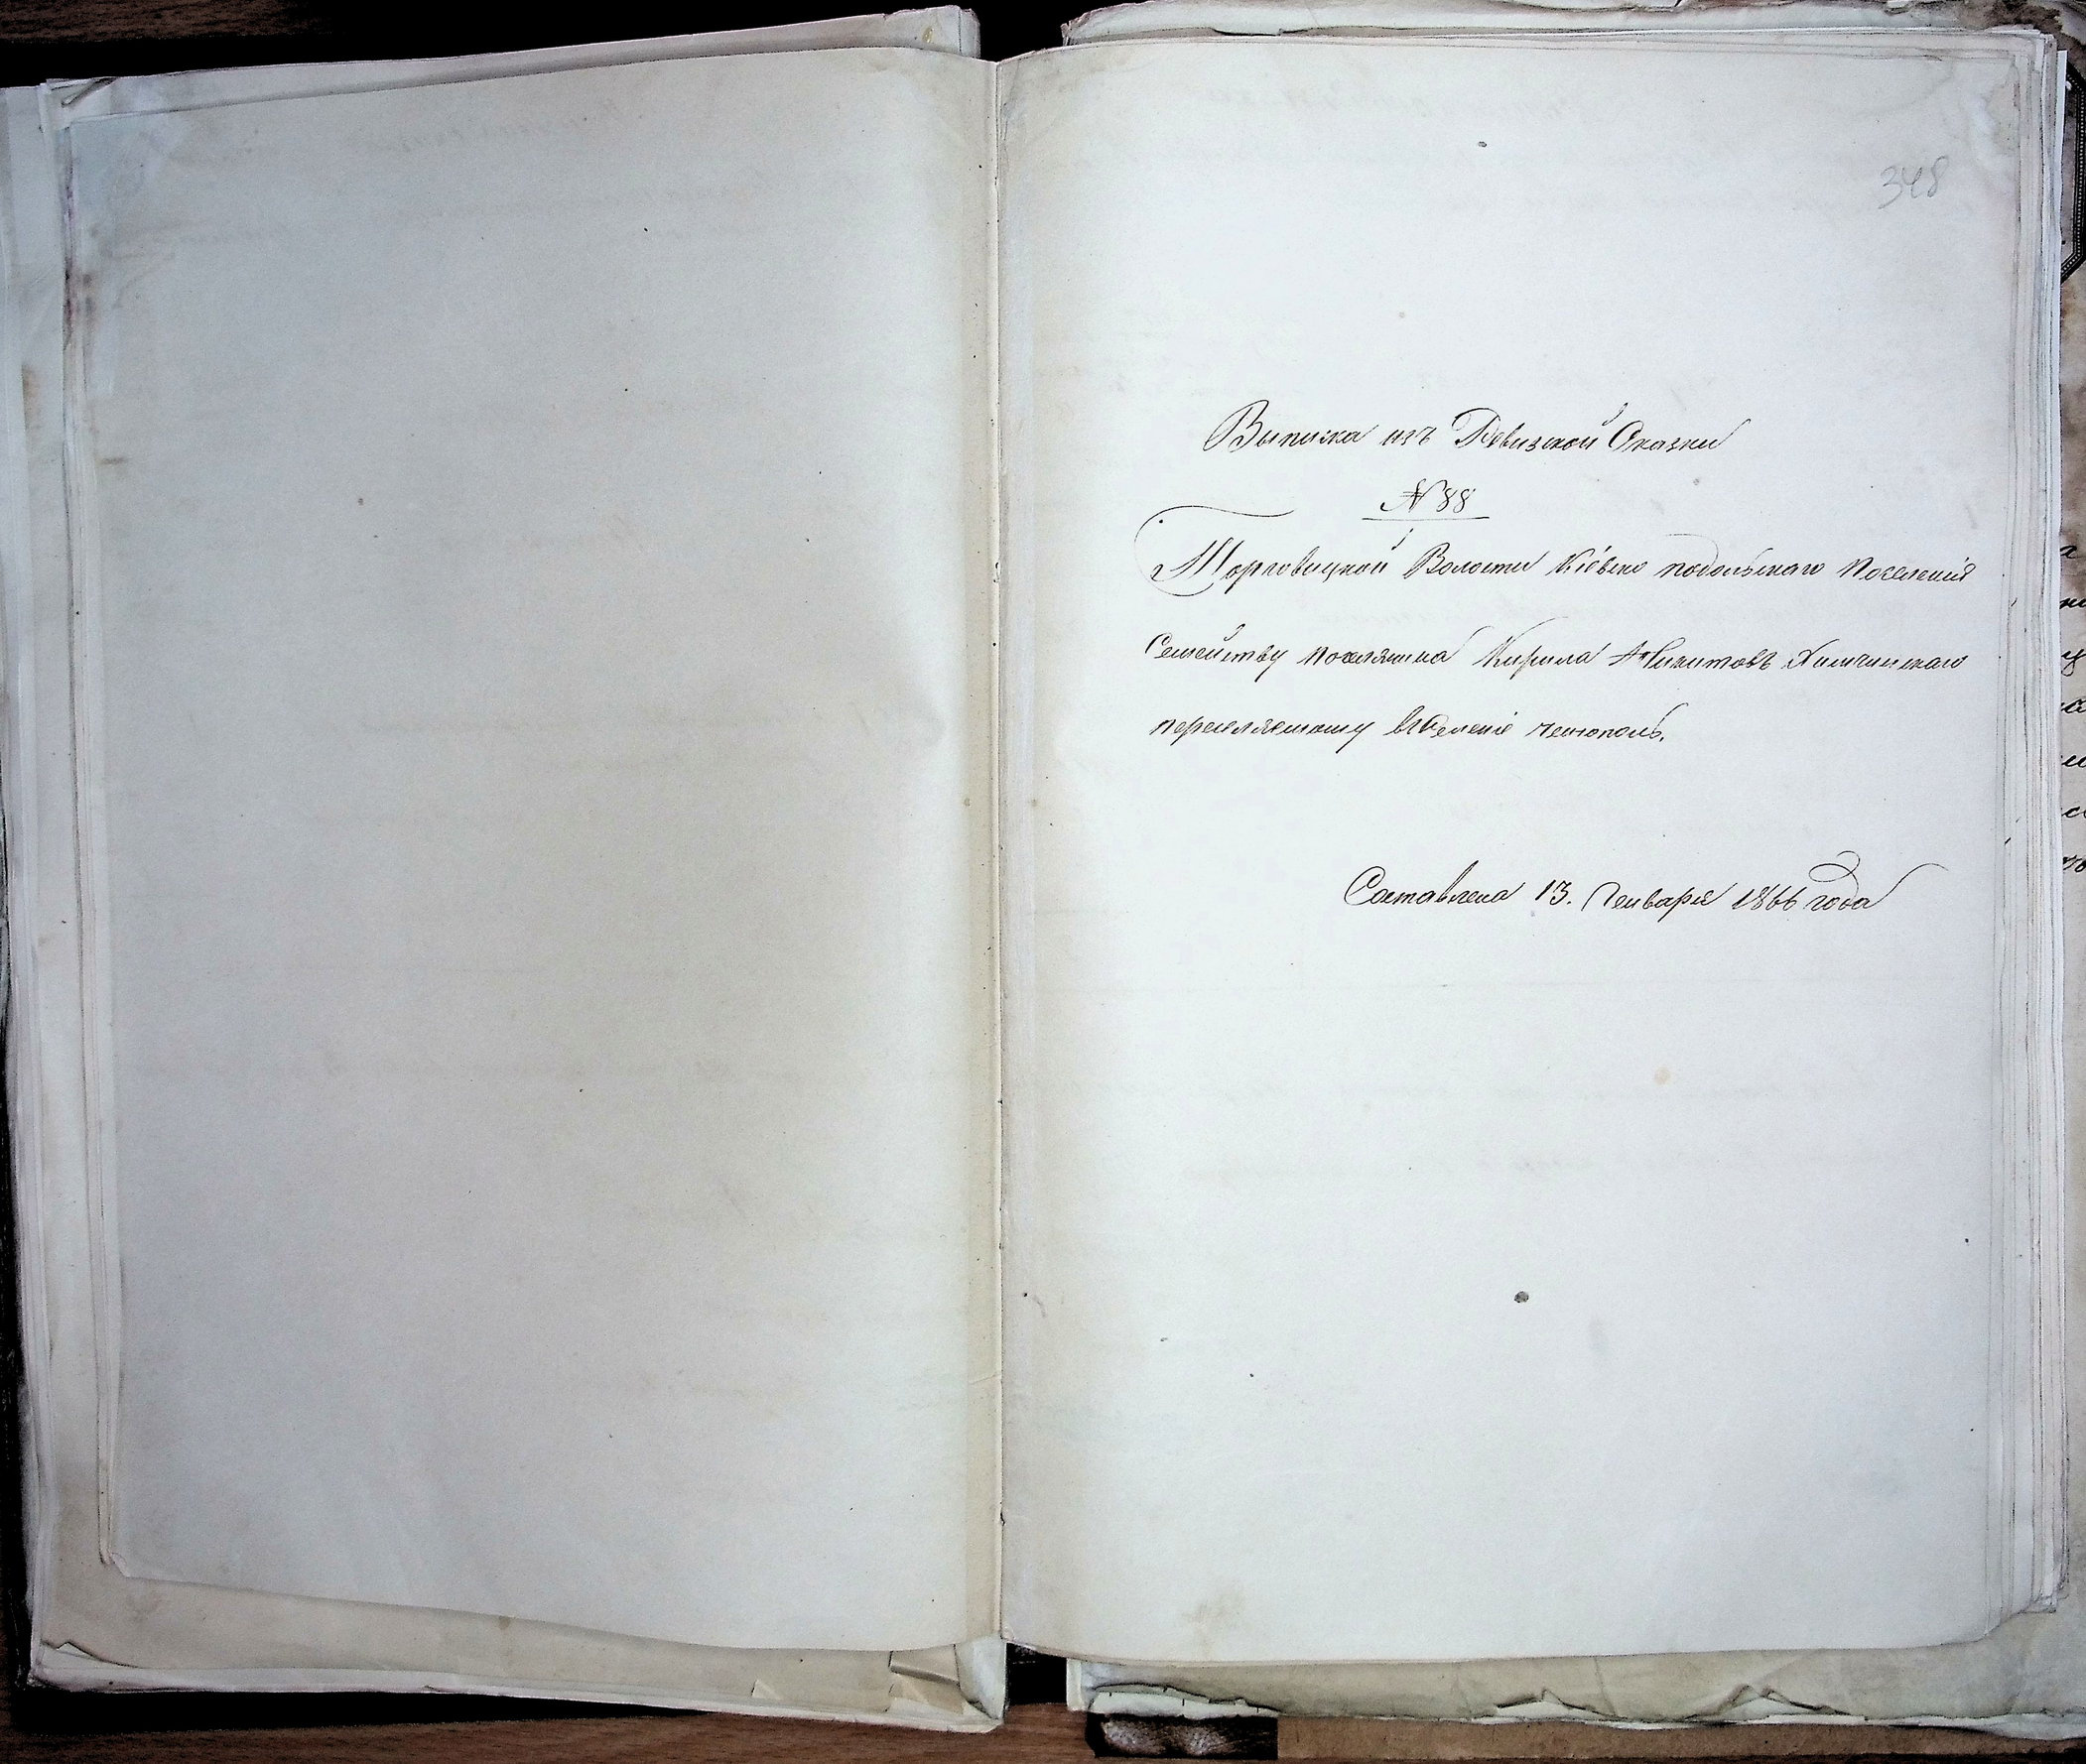 348
Выписка изъ Ревизской Сказки
№ 88
Торговицкой Волости Кіевско подольскаго поселенія
Семейству поселянина Кирила Никитовъ Химчинскаго
переселяемому въ селеніе
Составлена 13. Генваря 1866 года